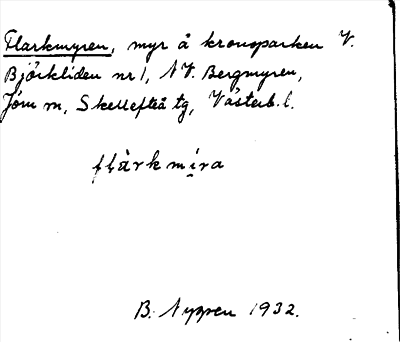 Flarkmyren, myr å kronoparken V.
Björkliden nr 1, NV. Bergmyren,
Jörn sn, Skellefteå tg, Västerb. l.
flàrkmı́ra
B. Nyppen 1932.